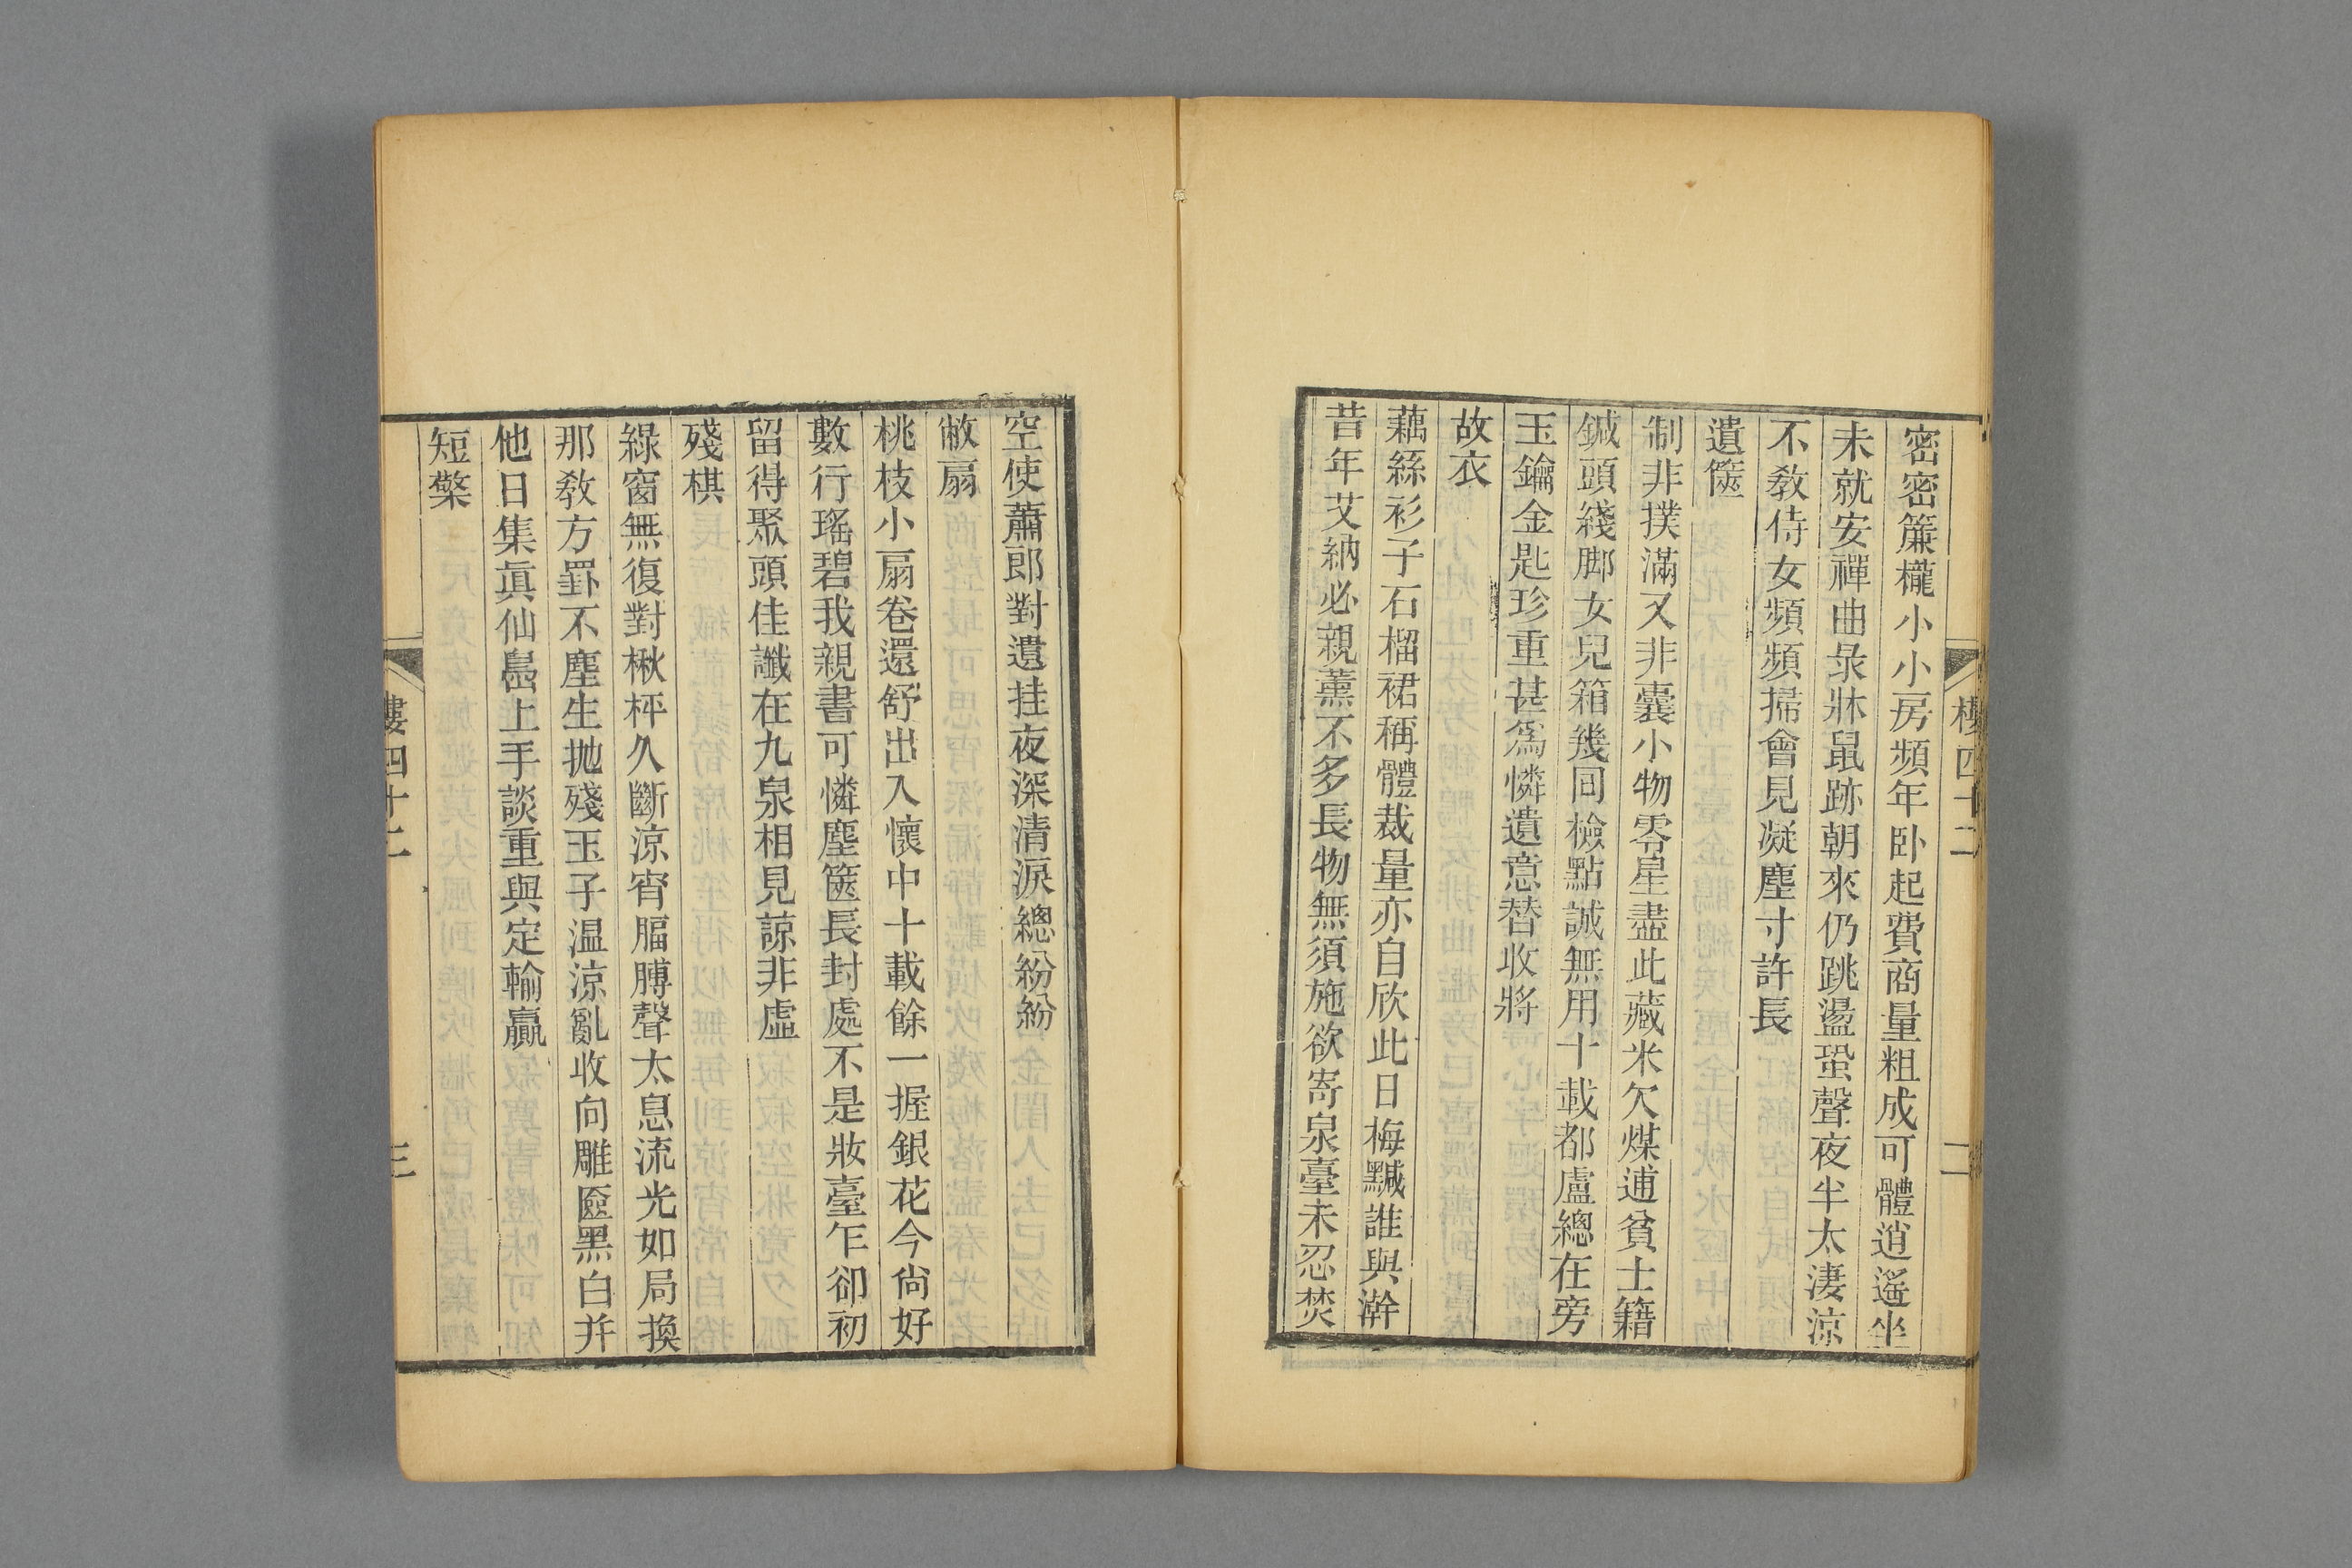 密密簾櫳小小房頻年卧起費商量粗成可體逍遥坐
未就安禪曲录牀鼠跡朝來仍跳盪蛩聲夜半太淒涼
不敎侍女頻頻掃會見凝塵寸許長
遺篋
制非撲滿又非囊小物零星盡此藏米欠煤逋貧士籍
鍼頭綫脚女兒箱幾回檢點誠無用十載都盧總在旁
玉鑰金匙珍重甚爲憐遺意替收將
故衣
藕絲衫子石榴裙稱體裁量亦自欣此日梅黬誰與澣
昔年艾納必親薰不多長物無須施欲寄泉臺未忍焚
樓四十二
二
空使蕭郎對遺挂夜深清淚總紛紛
敝扇
桃枝小扇卷還舒出入懷中十載餘一握銀花今尙好
數行瑤碧我親書可憐塵篋長封處不是妝臺乍卻初
留得聚頭佳讖在九泉相見諒非虛
殘棋
綠窗無復對楸枰久斷涼宵腷膊聲太息流光如局換
那敎方罫不塵生拋殘玉子温涼亂收向雕匳黑白并
他日集眞仙嵒上手談重與定輸贏
短檠
樓四十二
三